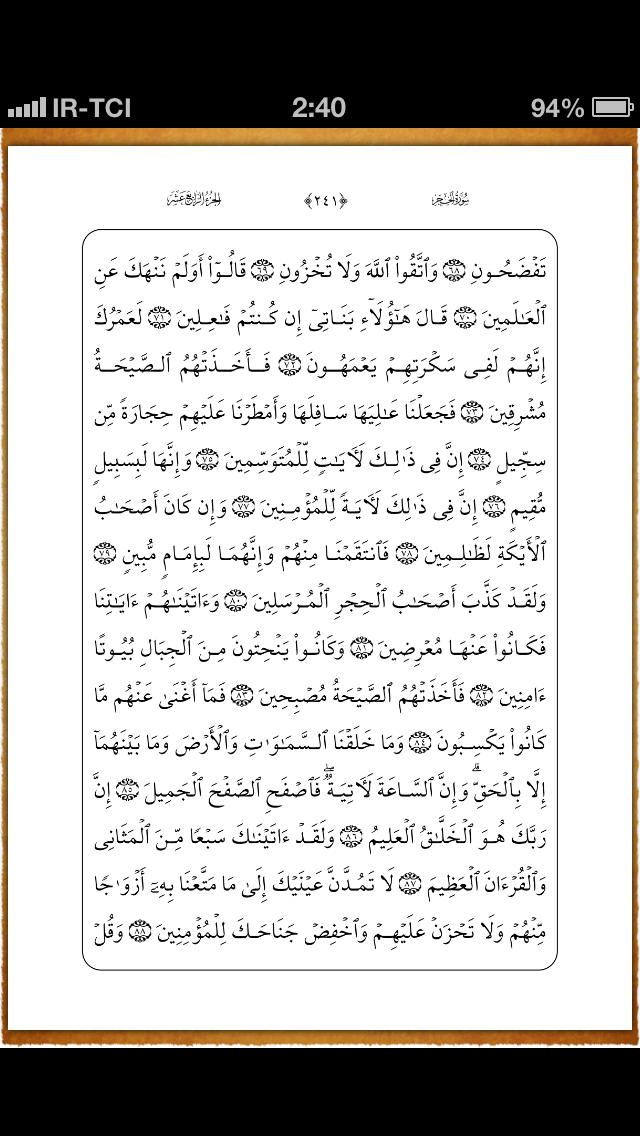 IR-TCI 2:40 94%
سُورَةُ الحِجر ﴿٢٤١﴾ الجُزءُ الرَّابِعَ عَشَرَ
تَفْضَحُونِ ٦٨ وَٱتَّقُوا۟ ٱللَّهَ وَلَا تُخْزُونِ ٦٩ قَالُوٓا۟ أَوَلَمْ نَنْهَكَ عَنِ
ٱلْعَـٰلَمِينَ ٧٠ قَالَ هَـٰٓؤُلَآءِ بَنَاتِىٓ إِن كُنتُمْ فَـٰعِلِينَ ٧١ لَعَمْرُكَ
إِنَّهُمْ لَفِى سَكْرَتِهِمْ يَعْمَهُونَ ٧٢ فَأَخَذَتْهُمُ ٱلصَّيْحَةُ
مُشْرِقِينَ ٧٣ فَجَعَلْنَا عَـٰلِيَهَا سَافِلَهَا وَأَمْطَرْنَا عَلَيْهِمْ حِجَارَةً مِّن
سِجِّيلٍ ٧٤ إِنَّ فِى ذَٰلِكَ لَـَٔايَـٰتٍ لِّلْمُتَوَسِّمِينَ ٧٥ وَإِنَّهَا لَبِسَبِيلٍ
مُّقِيمٍ ٧٦ إِنَّ فِى ذَٰلِكَ لَـَٔايَةً لِّلْمُؤْمِنِينَ ٧٧ وَإِن كَانَ أَصْحَـٰبُ
ٱلْأَيْكَةِ لَظَـٰلِمِينَ ٧٨ فَٱنتَقَمْنَا مِنْهُمْ وَإِنَّهُمَا لَبِإِمَامٍ مُّبِينٍ ٧٩
وَلَقَدْ كَذَّبَ أَصْحَـٰبُ ٱلْحِجْرِ ٱلْمُرْسَلِينَ ٨٠ وَءَاتَيْنَـٰهُمْ ءَايَـٰتِنَا
فَكَانُوا۟ عَنْهَا مُعْرِضِينَ ٨١ وَكَانُوا۟ يَنْحِتُونَ مِنَ ٱلْجِبَالِ بُيُوتًا
ءَامِنِينَ ٨٢ فَأَخَذَتْهُمُ ٱلصَّيْحَةُ مُصْبِحِينَ ٨٣ فَمَآ أَغْنَىٰ عَنْهُم مَّا
كَانُوا۟ يَكْسِبُونَ ٨٤ وَمَا خَلَقْنَا ٱلسَّمَـٰوَٰتِ وَٱلْأَرْضَ وَمَا بَيْنَهُمَآ
إِلَّا بِٱلْحَقِّ ۗ وَإِنَّ ٱلسَّاعَةَ لَـَٔاتِيَةٌ ۖ فَٱصْفَحِ ٱلصَّفْحَ ٱلْجَمِيلَ ٨٥ إِنَّ
رَبَّكَ هُوَ ٱلْخَلَّـٰقُ ٱلْعَلِيمُ ٨٦ وَلَقَدْ ءَاتَيْنَـٰكَ سَبْعًا مِّنَ ٱلْمَثَانِى
وَٱلْقُرْءَانَ ٱلْعَظِيمَ ٨٧ لَا تَمُدَّنَّ عَيْنَيْكَ إِلَىٰ مَا مَتَّعْنَا بِهِۦٓ أَزْوَٰجًا
مِّنْهُمْ وَلَا تَحْزَنْ عَلَيْهِمْ وَٱخْفِضْ جَنَاحَكَ لِلْمُؤْمِنِينَ ٨٨ وَقُلْ